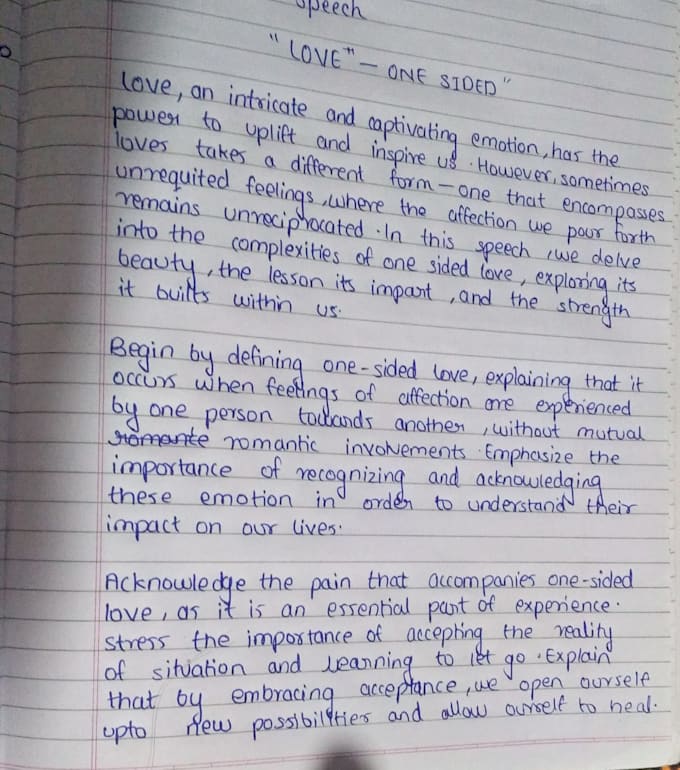 speech
"LOVE" — ONE SIDED"
Love, an intricate and captivating emotion, has the
power to uplift and inspire us. However, sometimes
loves takes a different form — one that encompasses
unrequited feelings, where the affection we pour forth
remains unreciprocated. In this speech, we delve
into the complexities of one sided love, exploring its
beauty, the lesson its impart, and the strength
it builts within us.
Begin by defining one-sided love, explaining that it
occurs when feelings of affection are experienced
by one person towards another, without mutual
romantic involvements. Emphasize the
importance of recognizing and acknowledging
these emotion in order to understand their
impact on our lives.
Acknowledge the pain that accompanies one-sided
love, as it is an essential part of experience.
stress the importance of accepting the reality
of situation and learning to let go. Explain
that by embracing acceptance, we open ourself
upto new possibilities and allow ourself to heal.